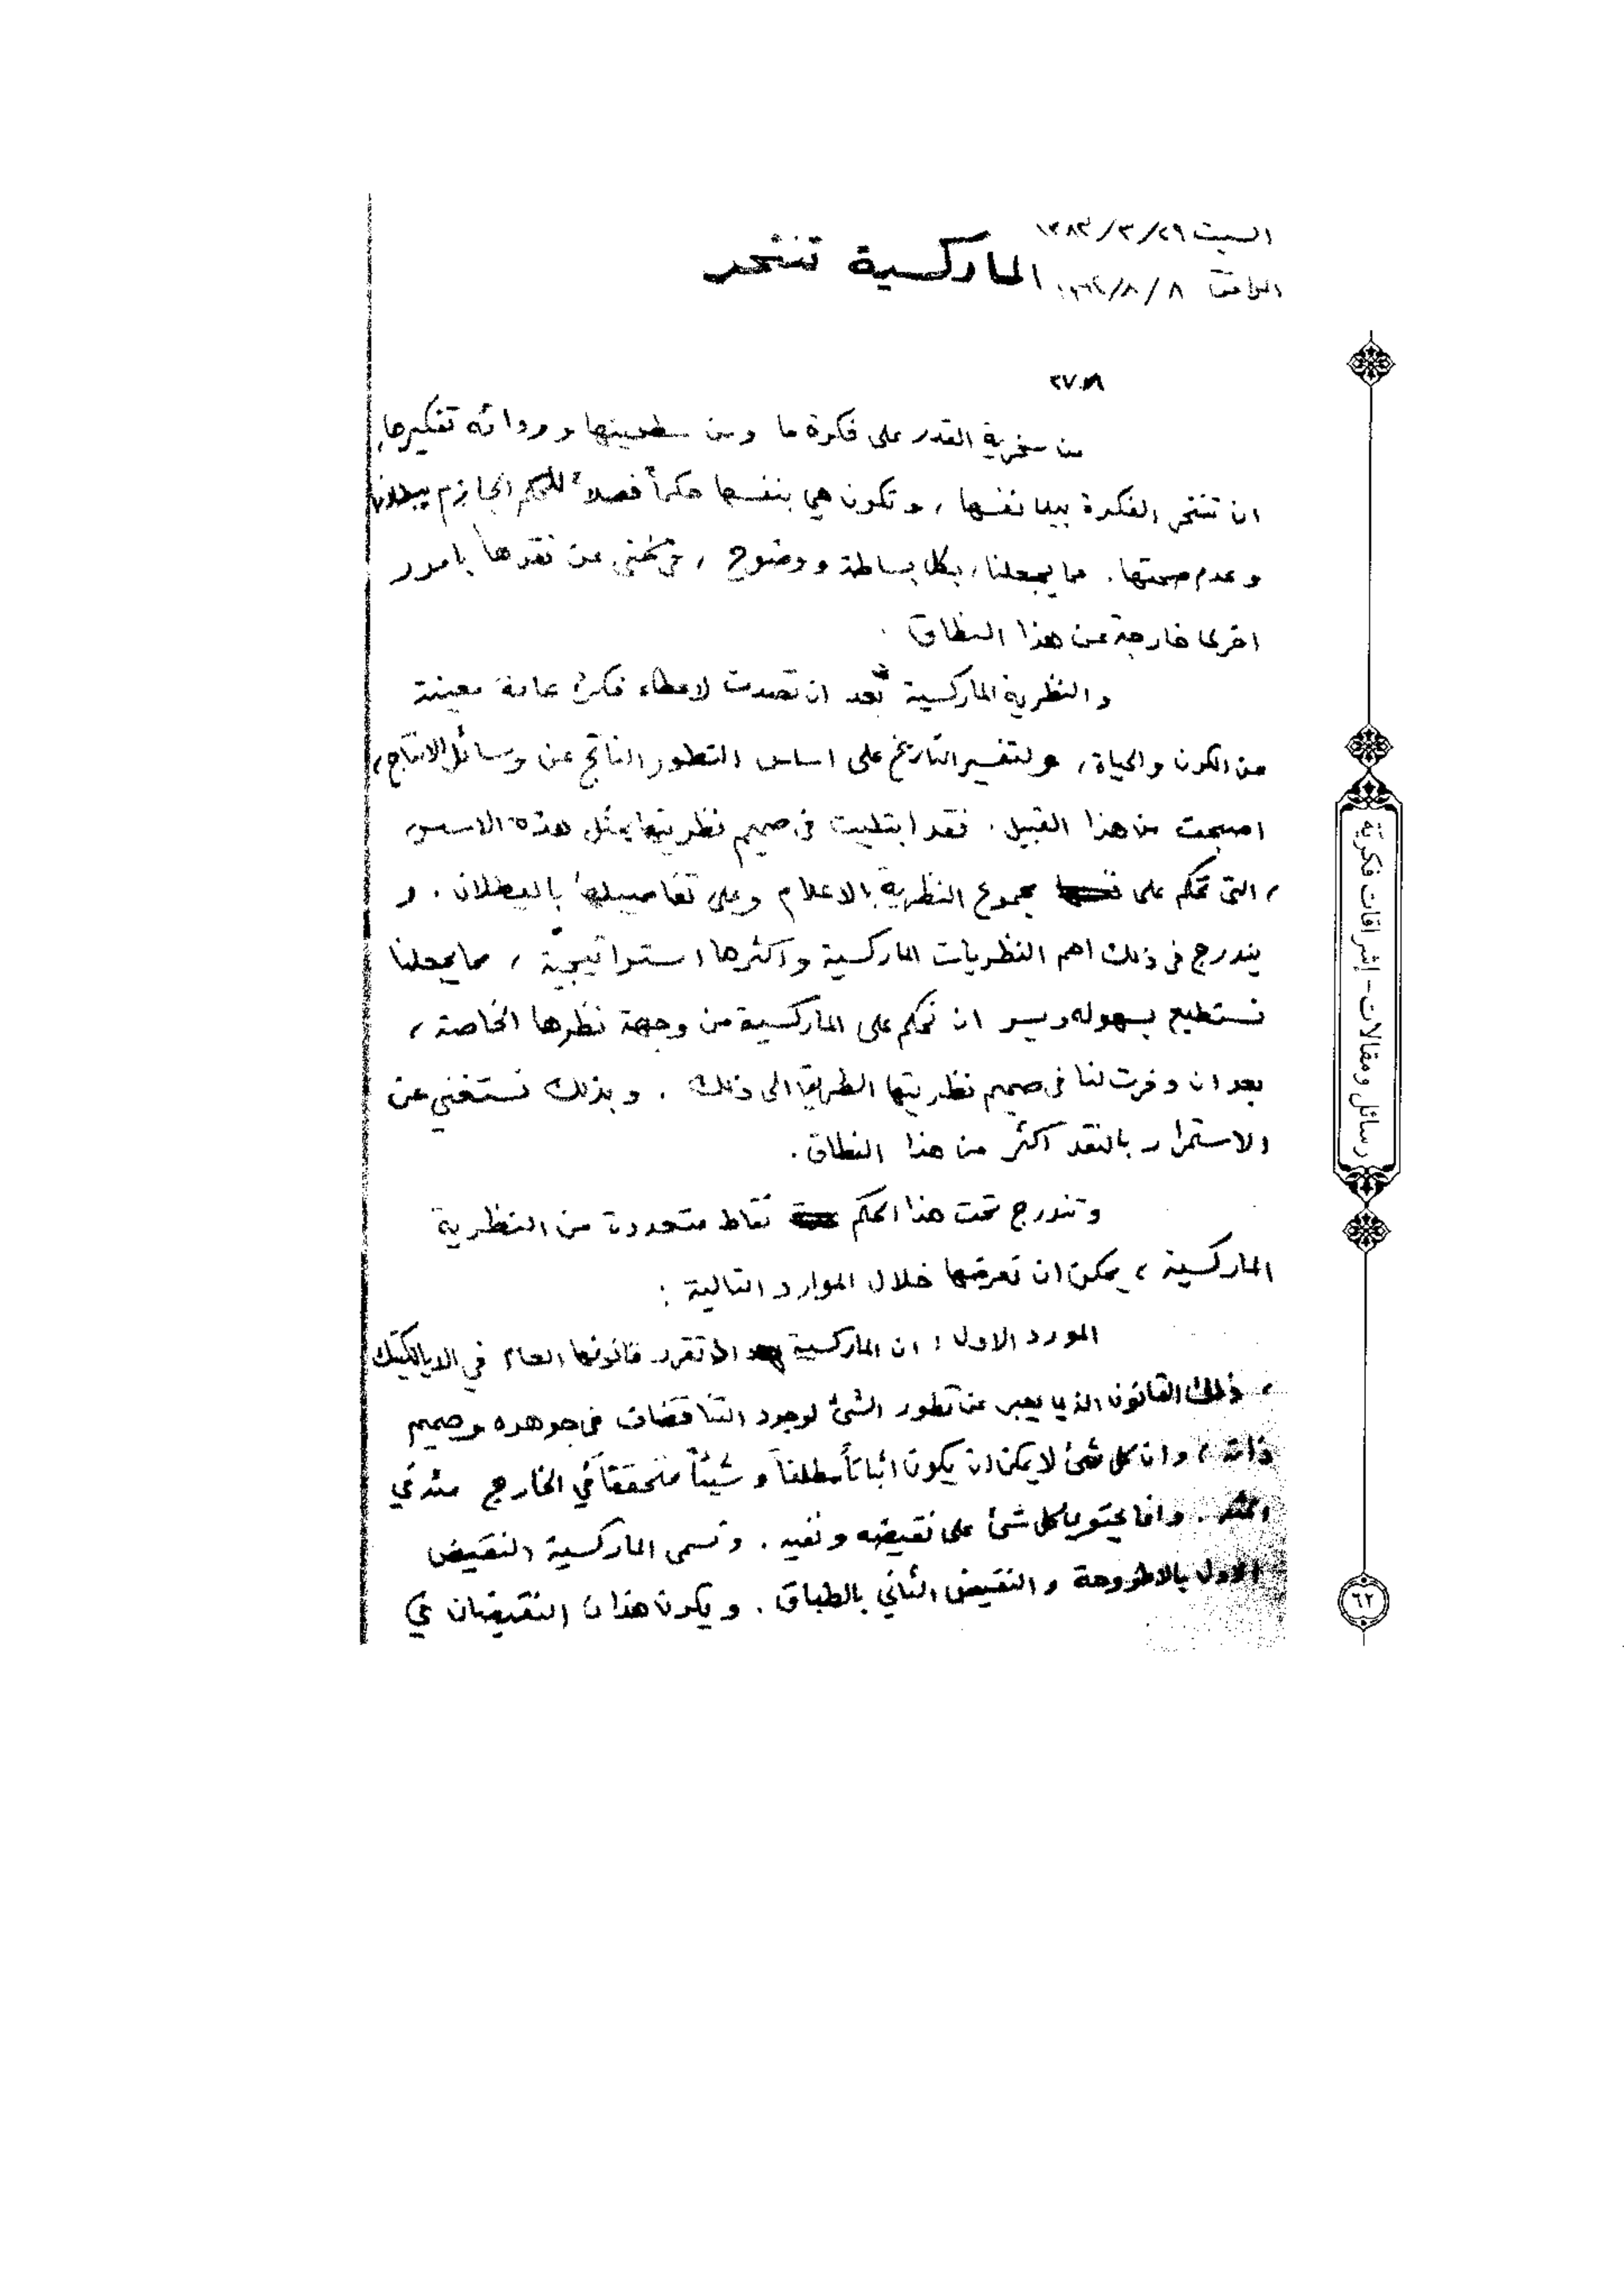 السبت ٢٩/٣/١٣٨٣
الموافق ٨/٨/
الماركسية تنتحر
من سخرية القدر على فكرة ما ومن سطحيتها وردائه تفكيرها،
ان تنتحر الفكرة بيد نفسها ، وتكون هي بنفسها حكماً فصلاً للحكم الجازم ببطلانها
وعدم صحتها . مما يجعلنا، بكل بساطة ووضوح ، في غنى عن نقدها بامور
اخرى خارجة عن هذا النطاق .
والنظرية الماركسية بعد ان تصدت لاعطاء فكرة عامة معينة
عن الكون والحياة ، ولتفسير التاريخ على اساس التطور الناتج عن وسائل الانتاج ،
اصبحت من هذا القبيل . فقد ابتليت في صميم نظريتها بمثل هذه الاسس
، التي تحكم على مجموع النظرية بالاعدام وعلى تفاصيلها بالبطلان . و
يندرج في ذلك اهم النظريات الماركسية واكثرها استراتيجيّة ، مما يجعلنا
نستطيع بسهوله ويسر ان نحكم على الماركسية من وجهة نظرها الخاصة ،
بعد ان وفرت لنا في صميم نظريتها الطريق الى ذلك . وبذلك نستغني عن
الاستمرار بالنقد اكثر من هذا النطاق .
وتندرج تحت هذا الحكم نقاط متعددة من النظرية
الماركسية ، يمكن ان نعرضها خلال الموارد التالية :
المورد الاول : ان الماركسية اذ تقرر قانونها العام في الديالكتيك
، ذلك القانون الذي يعبر عن تطور الشئ لوجود التناقضات في جوهره وصميم
ذاته ، وان كل شئ لا يمكن ان يكون اثباتاً مطلقاً وشيئاً متحققاً في الخارج مئة في
المئة . وانما يحتوي كل شئ على نقيضه ونفيه . وتسمى الماركسية النقيض
الاول بالاطروحة والنقيض الثاني بالطباق . ويكون هذان النقيضان في
رسائل ومقالات - إشراقات فكرية
٦٢